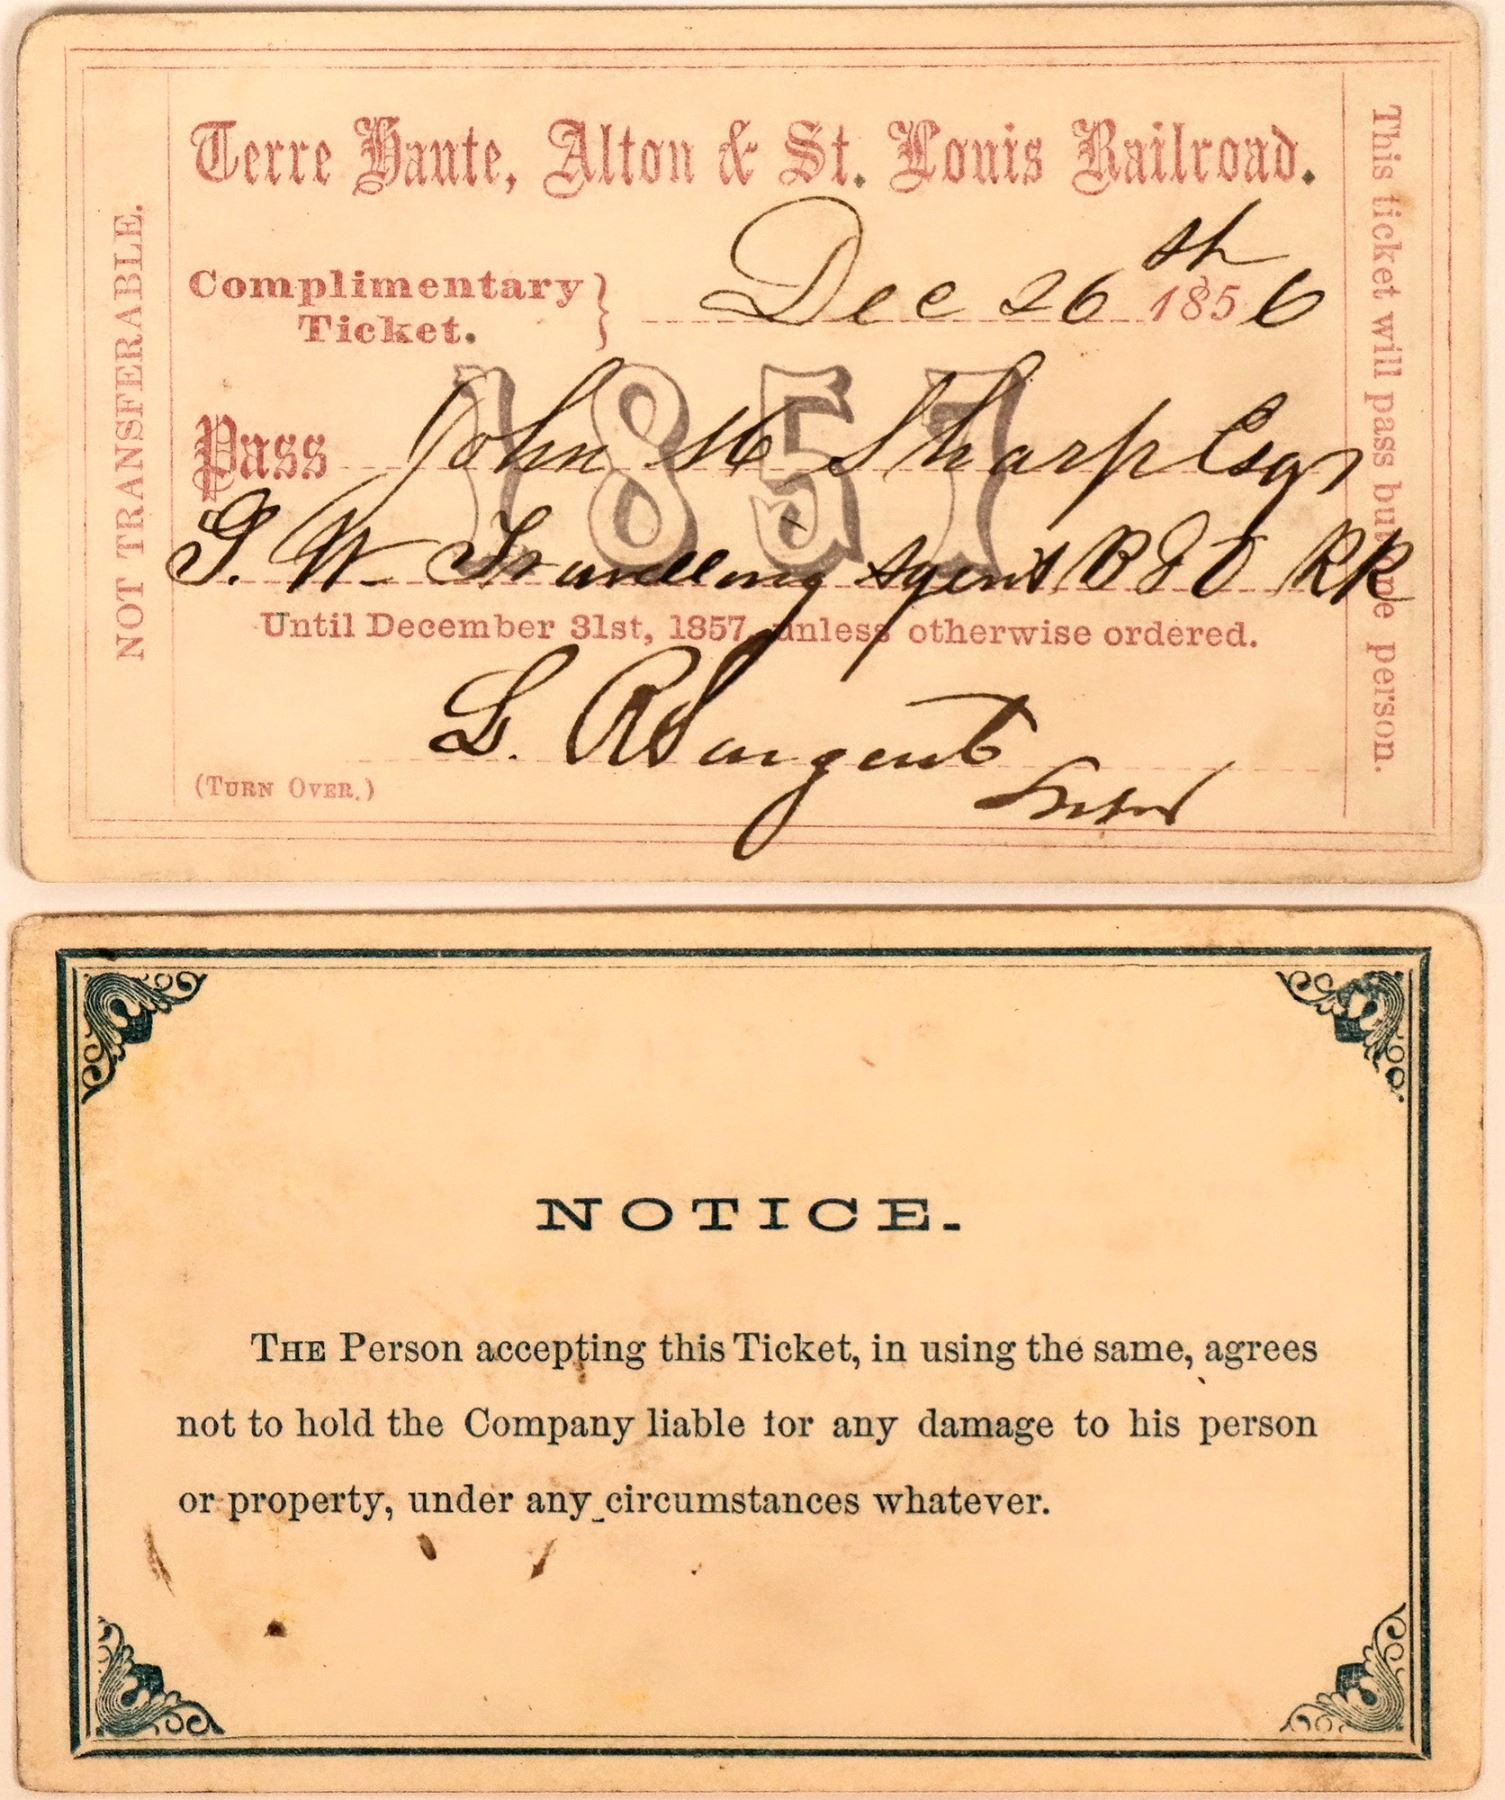 Terre Haute, Alton & St. Louis Railroad.
Complimentary Ticket.
Dec 26th 1856
1857
Pass John H Sharp Esqr
G. W. Travelling Agent B & O RR
Until December 31st, 1857, unless otherwise ordered.
L. R Sargent
Supt
(TURN OVER.)
NOT TRANSFERABLE.
This ticket will pass but one person.
NOTICE.
THE Person accepting this Ticket, in using the same, agrees
not to hold the Company liable for any damage to his person
or property, under any circumstances whatever.